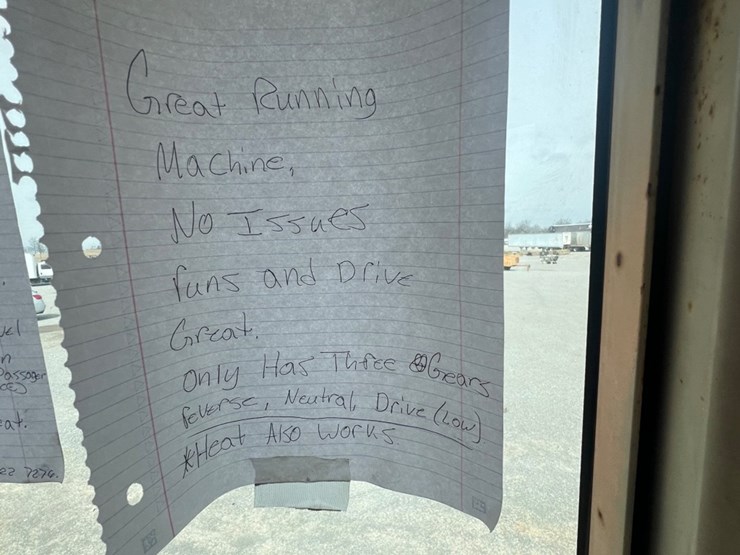 Great Running
Machine,
No Issues
runs and Drive
Great.
Only Has Three Gears
reverse, Neutral, Drive (Low)
*Heat Also works
uel
n
Passager
eat.
22 7276.